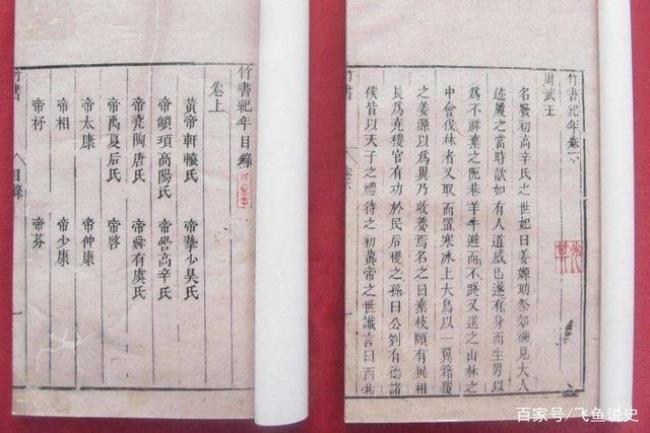 竹書紀年目錄
卷上
黃帝軒轅氏 帝摯少昊氏
帝顓頊高陽氏 帝嚳高辛氏
帝堯陶唐氏 帝舜有虞氏
帝禹夏后氏 帝啓
帝太康 帝仲康
帝相 帝少康
帝杼 帝芬
竹書 目錄
竹書紀年卷六
周武王
名發初高辛氏之世妃曰姜嫄助祭郊禖見大人
迹履之當時歆如有人道感己遂有身而生男以
為不祥棄之阨巷羊牛避而不踐又送之山林之
中會伐林者又取而置寒冰上大鳥以一翼藉覆
之姜源以為異乃收養焉名之曰棄枝頤有異相
長為堯稷官有功於民后稷之孫曰公劉有德諸
侯皆以天子之禮待之初黃帝之世讖言曰西北
竹書 卷六
百家号/飞鱼说史